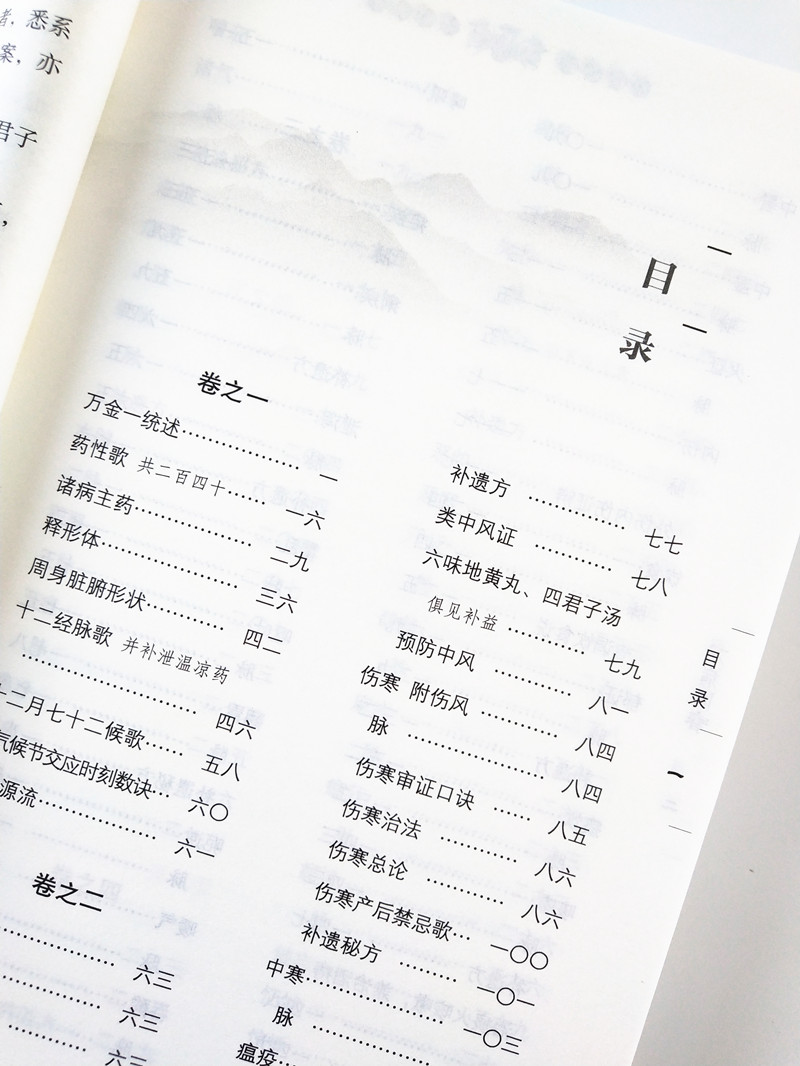 悉系
案，亦
君子
目录
卷之一
万金一统述………………一
药性歌 共二百四十……一六
诸病主药………………二九
释形体………………三六
周身脏腑形状…………四二
十二经脉歌 并补泄温凉药
………………………四六
十二月七十二候歌……五八
气候节交应时刻数诀…六〇
源流………………六一
卷之二
………………六三
………………六三
………………六三
补遗方 ……………七七
类中风证 …………七八
六味地黄丸、四君子汤
俱见补益 …………七九
预防中风 …………八一
伤寒 附伤风 …………八四
脉 …………………八四
伤寒审证口诀 ……八五
伤寒治法 …………八六
伤寒总论 …………八六
伤寒产后禁忌歌…一〇〇
补遗秘方 ………一〇一
中寒………………一〇三
脉 ………………
瘟疫
目录
一